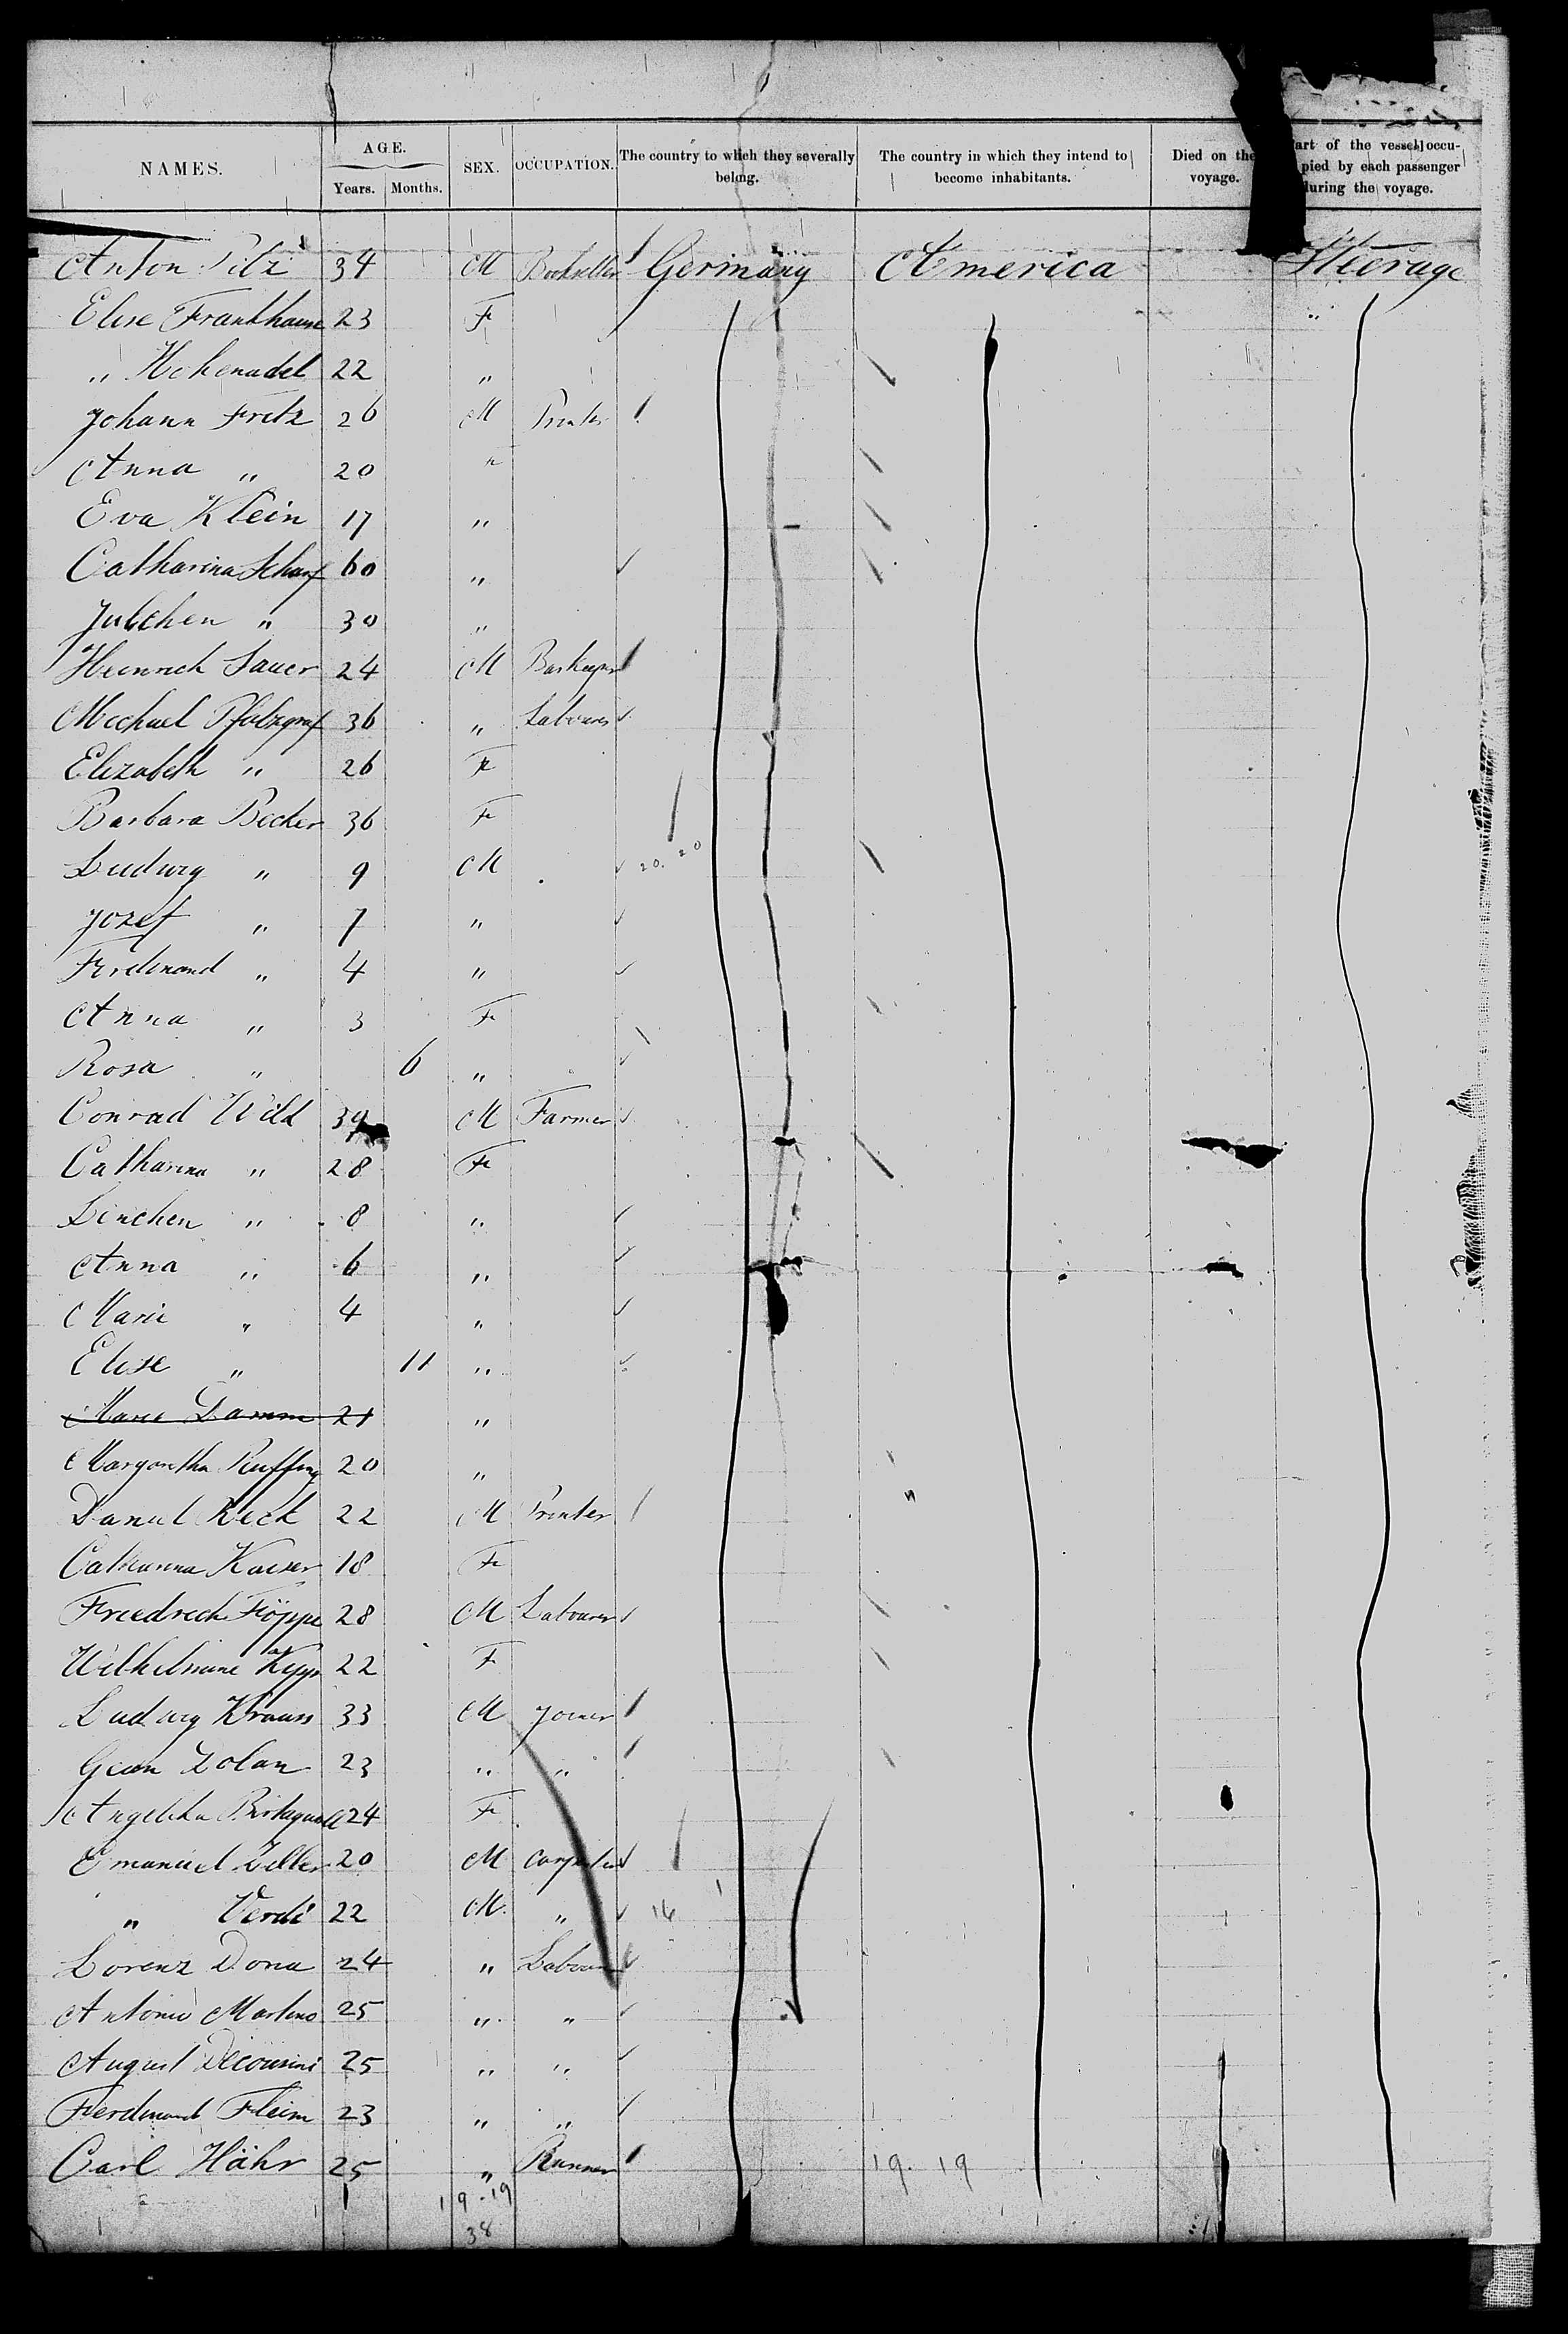 NAMES. AGE. Years. Months. SEX. OCCUPATION. The country to which they severally belong. The country in which they intend to become inhabitants. Died on the voyage. art of the vessel occupied by each passenger during the voyage.
Anton Pilz 34 M Bookseller Germany America Steerage
Elise Frankhause 23 F
" Hohenadel 22 "
Johann Fritz 26 M Printer
Anna " 20 "
Eva Klein 17 "
Catharina Scharf 60 "
Julchen " 30 "
Heinrich Sauer 24 M Barkeeper
Michael Pfalzgraf 36 " Labourer
Elizabeth " 26 F
Barbara Becker 36 F
Ludwig " 9 M 20. 20
Jozef " 7 "
Ferdinand " 4 "
Anna " 3 F
Rosa " 6 "
Conrad Wild 39 M Farmer
Catharina " 28 F
Linchen " 8 "
Anna " 6 "
Marie " 4 "
Elise " 11 "
Marie Damm 21 "
Margaretha Ruffing 20 "
Daniel Keck 22 M Printer
Catharina Kaiser 18 F
Friedrich 28 M Labourer
Wilhelmine 22 F
Ludwig Krauss 33 M Joiner
Zolan 23 " "
Angelika 24 F
Emanuel Zeller 20 M Carpenter
" Verdi 22 M. " 16
Lorenz Dona 24 " Labourer
Antonio Martino 25 " "
August 25 " "
Ferdinand Fleim 23 " "
Carl Hähr 25 " Runner 19. 19
19.19
38